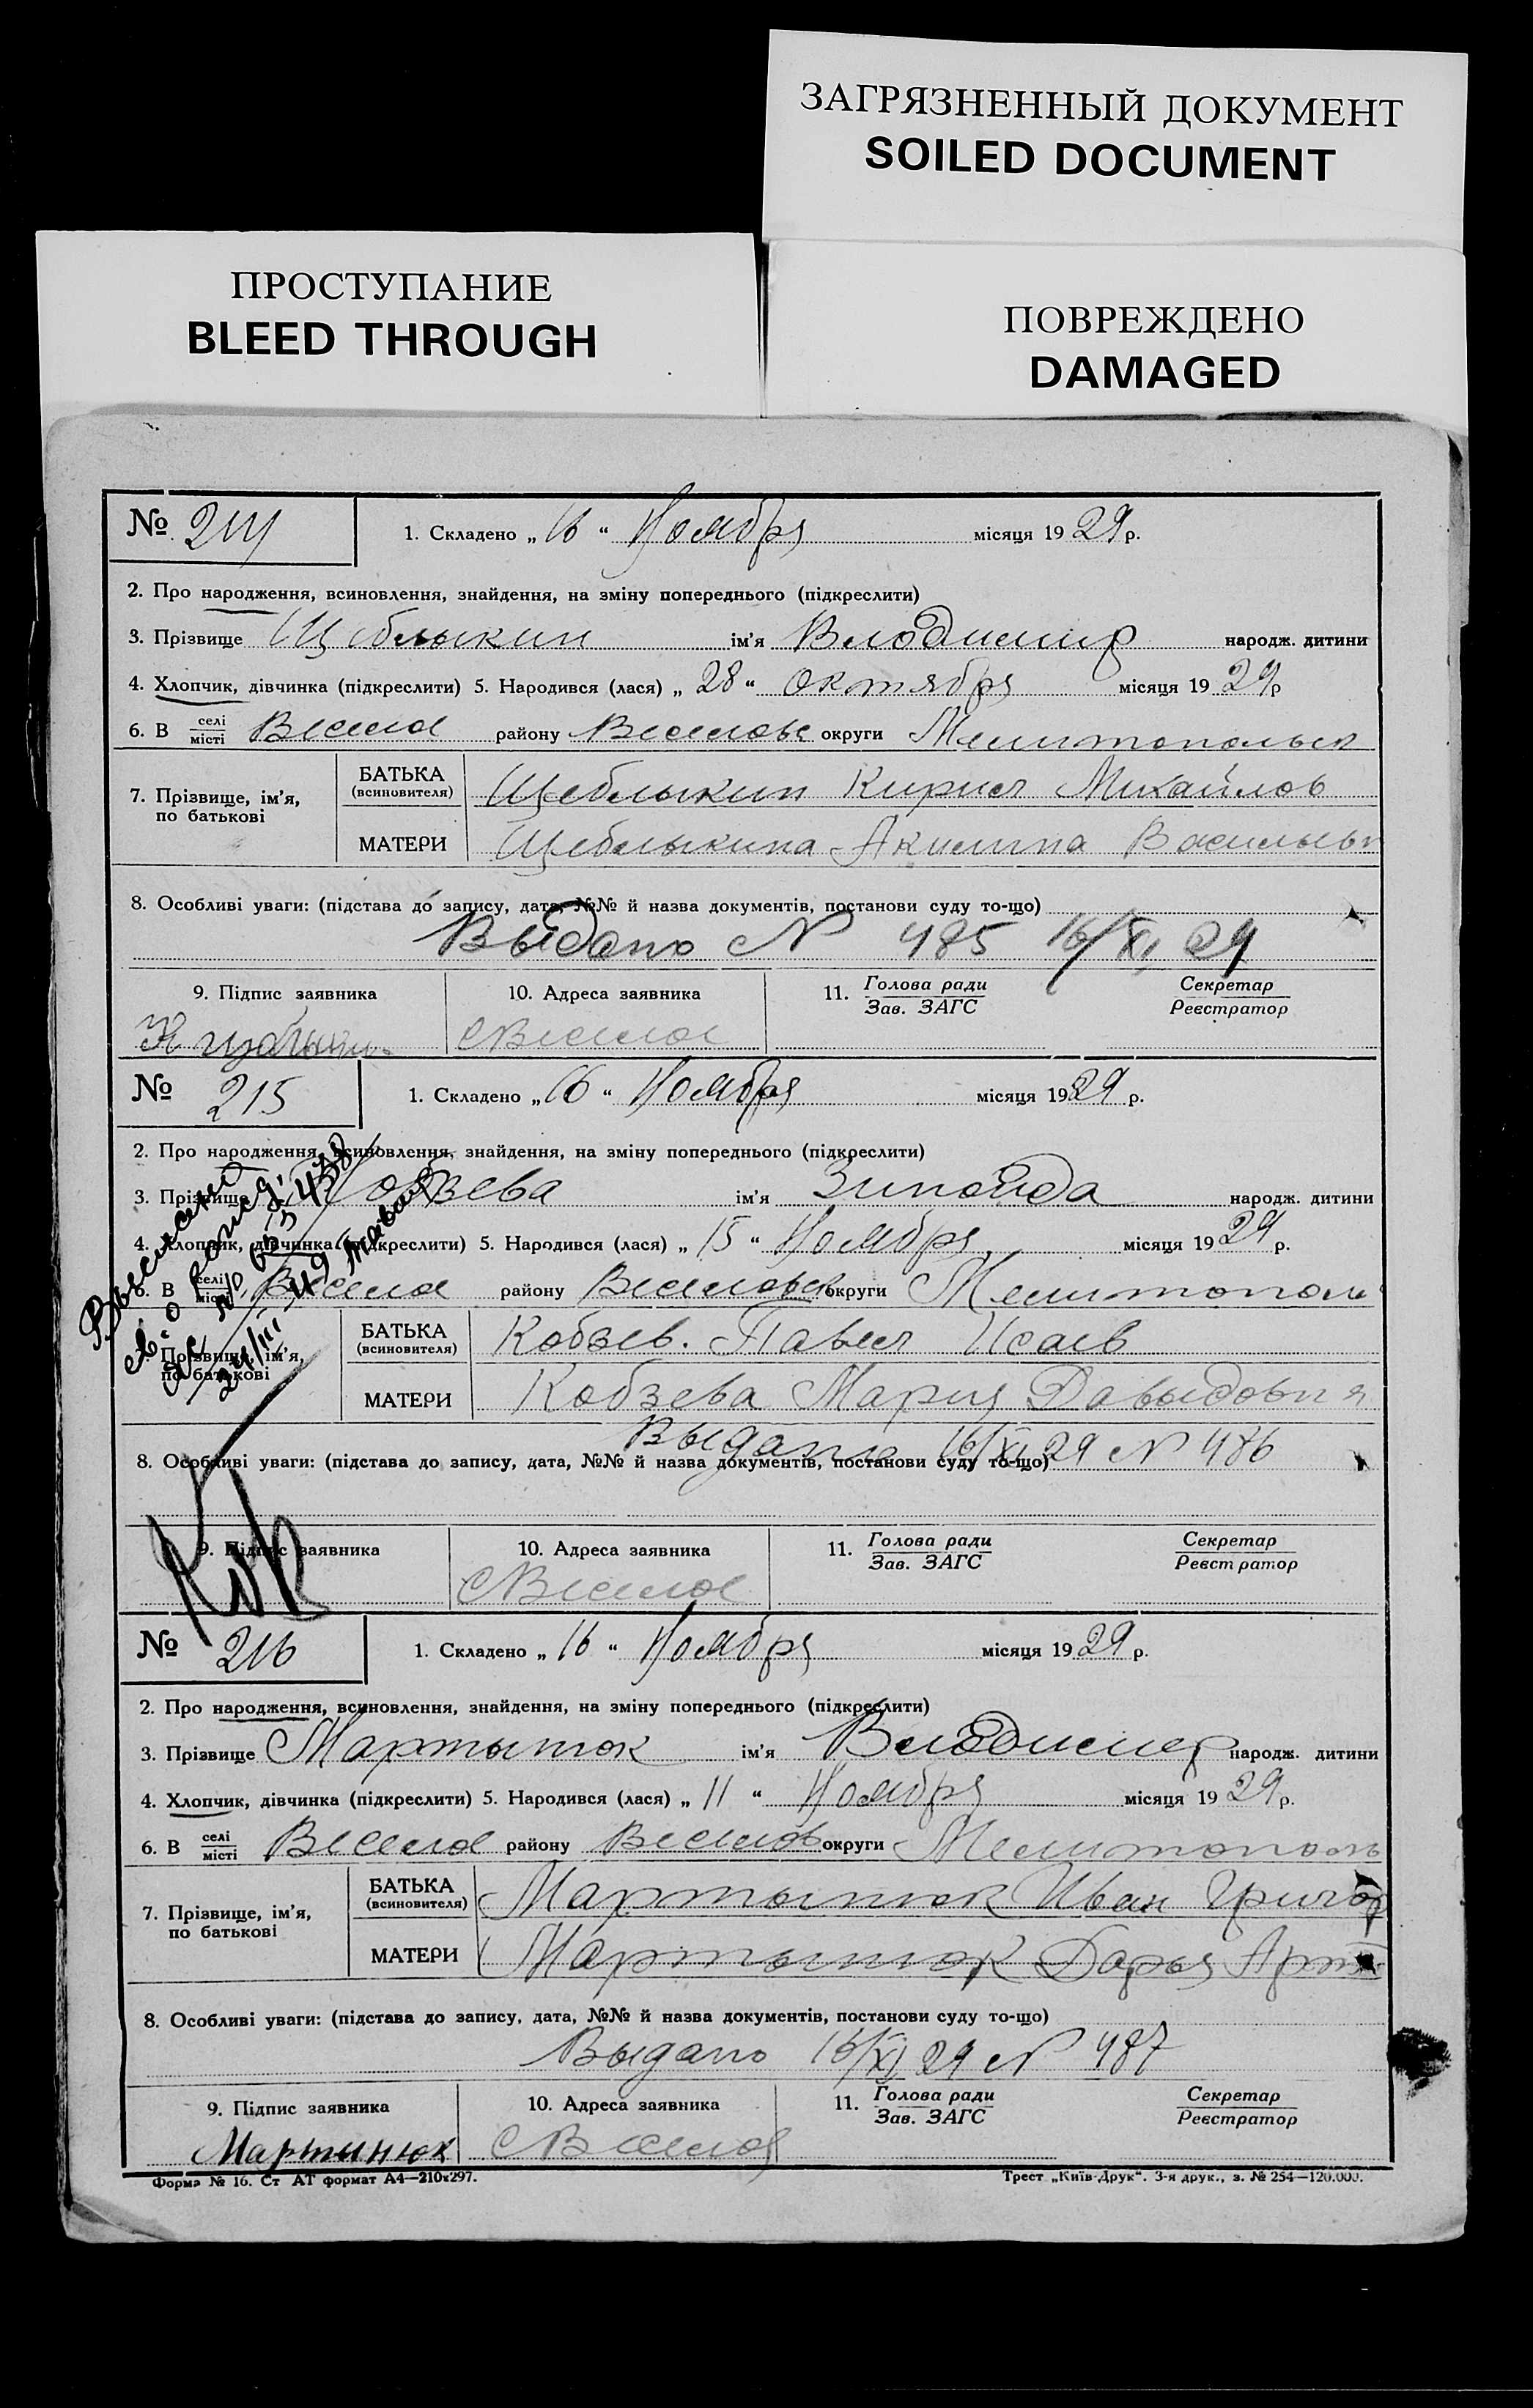 ЗАГРЯЗНЕННЫЙ ДОКУМЕНТ
SOILED DOCUMENT
ПРОСТУПАНИЕ
BLEED THROUGH
ПОВРЕЖДЕНО
DAMAGED
№ 214
1. Складено „ 16 “ Ноября місяця 1929 р.
2. Про народження, всиновлення, знайдення, на зміну попереднього (підкреслити)
3. Прізвище Щеблыкин ім'я Владимир народж. дитини
4. Хлопчик, дівчинка (підкреслити) 5. Народився (лася) „ 28 “ октября місяця 1929 р
6. В селі місті Весела району Веселовс округи Мелитопольск
7. Прізвище, ім'я, по батькові
БАТЬКА (всиновителя) Щеблыкин Кирил Михайлов
МАТЕРИ Щеблыкина Акилина Васильевн
8. Особливі уваги: (підстава до запису, дата, №№ й назва документів, постанови суду то-що)
Выдано N 485 16/XI 29
9. Підпис заявника
10. Адреса заявника
11. Голова ради Зав. ЗАГС
Секретар Реєстратор
С Весела
№ 215
1. Складено „ 16 “ Ноября місяця 1929 р.
2. Про народження, всиновлення, знайдення, на зміну попереднього (підкреслити)
3. Прізвище Кобзева ім'я Зинаида народж. дитини
4. Хлопчик, дівчинка (підкреслити) 5. Народився (лася) „ 15 “ Ноября місяця 1929 р.
6. В селі місті Весела району Веселовск округи Мелитополь
7. Прізвище, ім'я, по батькові
БАТЬКА (всиновителя) Кобзев. Павел Исаев
МАТЕРИ Кобзева Мария Давыдовна
Выдана 16/XI 29 N 486
8. Особливі уваги: (підстава до запису, дата, №№ й назва документів, постанови суду то-що)
9. Підпис заявника
10. Адреса заявника
11. Голова ради Зав. ЗАГС
Секретар Реєстратор
С Весела
№ 216
1. Складено „ 16 “ Ноября місяця 1929 р.
2. Про народження, всиновлення, знайдення, на зміну попереднього (підкреслити)
3. Прізвище Мартынюк ім'я Владимир народж. дитини
4. Хлопчик, дівчинка (підкреслити) 5. Народився (лася) „ 11 “ Ноября місяця 1929 р.
6. В селі місті Весела району Веселов округи Мелитополь
7. Прізвище, ім'я, по батькові
БАТЬКА (всиновителя) Мартынюк Иван Григор
МАТЕРИ Мартынюк Дарья
8. Особливі уваги: (підстава до запису, дата, №№ й назва документів, постанови суду то-що)
Выдано 16/XI 29 N 487
9. Підпис заявника
10. Адреса заявника
11. Голова ради Зав. ЗАГС
Секретар Реєстратор
Мартинюк
С Весела
Форма № 16. Ст АТ формат А4—210х297.
Трест „Київ-Друк“. 3-я друк., з. № 254—120.000.